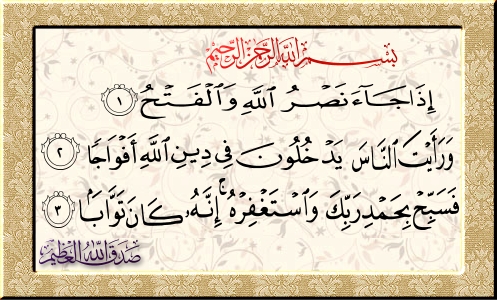 بِسْمِ ٱللَّهِ ٱلرَّحْمَٰنِ ٱلرَّحِيمِ
إِذَا جَآءَ نَصْرُ ٱللَّهِ وَٱلْفَتْحُ ١
وَرَأَيْتَ ٱلنَّاسَ يَدْخُلُونَ فِى دِينِ ٱللَّهِ أَفْوَاجًا ٢
فَسَبِّحْ بِحَمْدِ رَبِّكَ وَٱسْتَغْفِرْهُ ۚ إِنَّهُۥ كَانَ تَوَّابًۢا ٣
صَدَقَ اللَّهُ العَظِيمُ